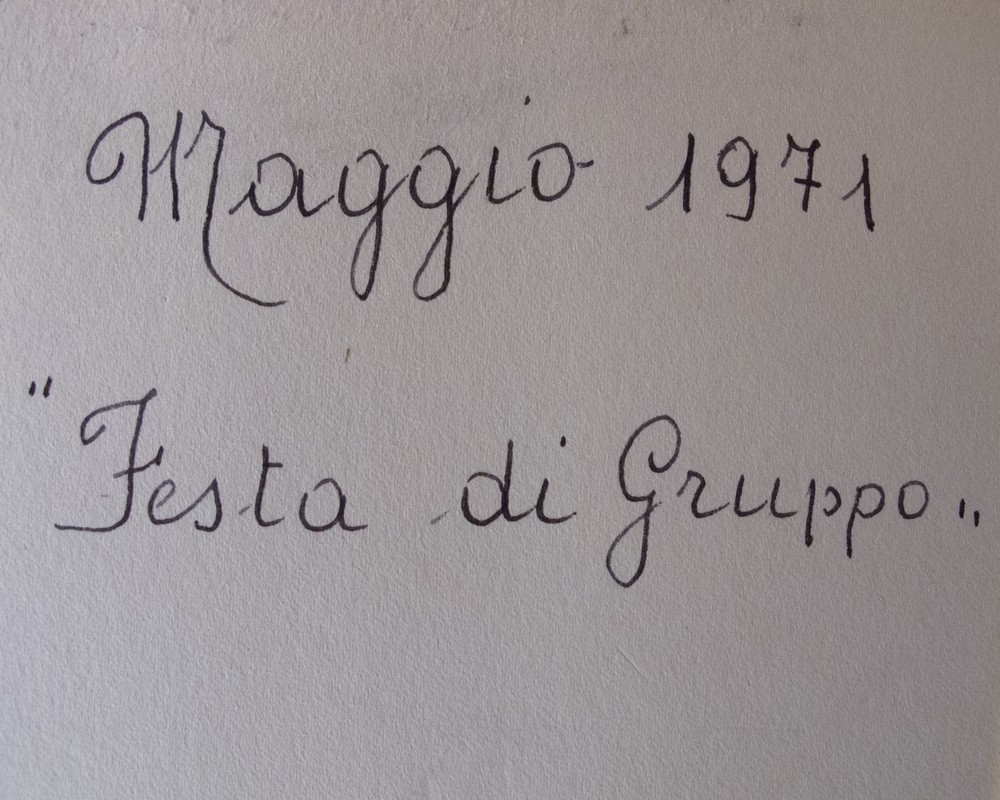 Maggio 1971
"Festa di Gruppo„